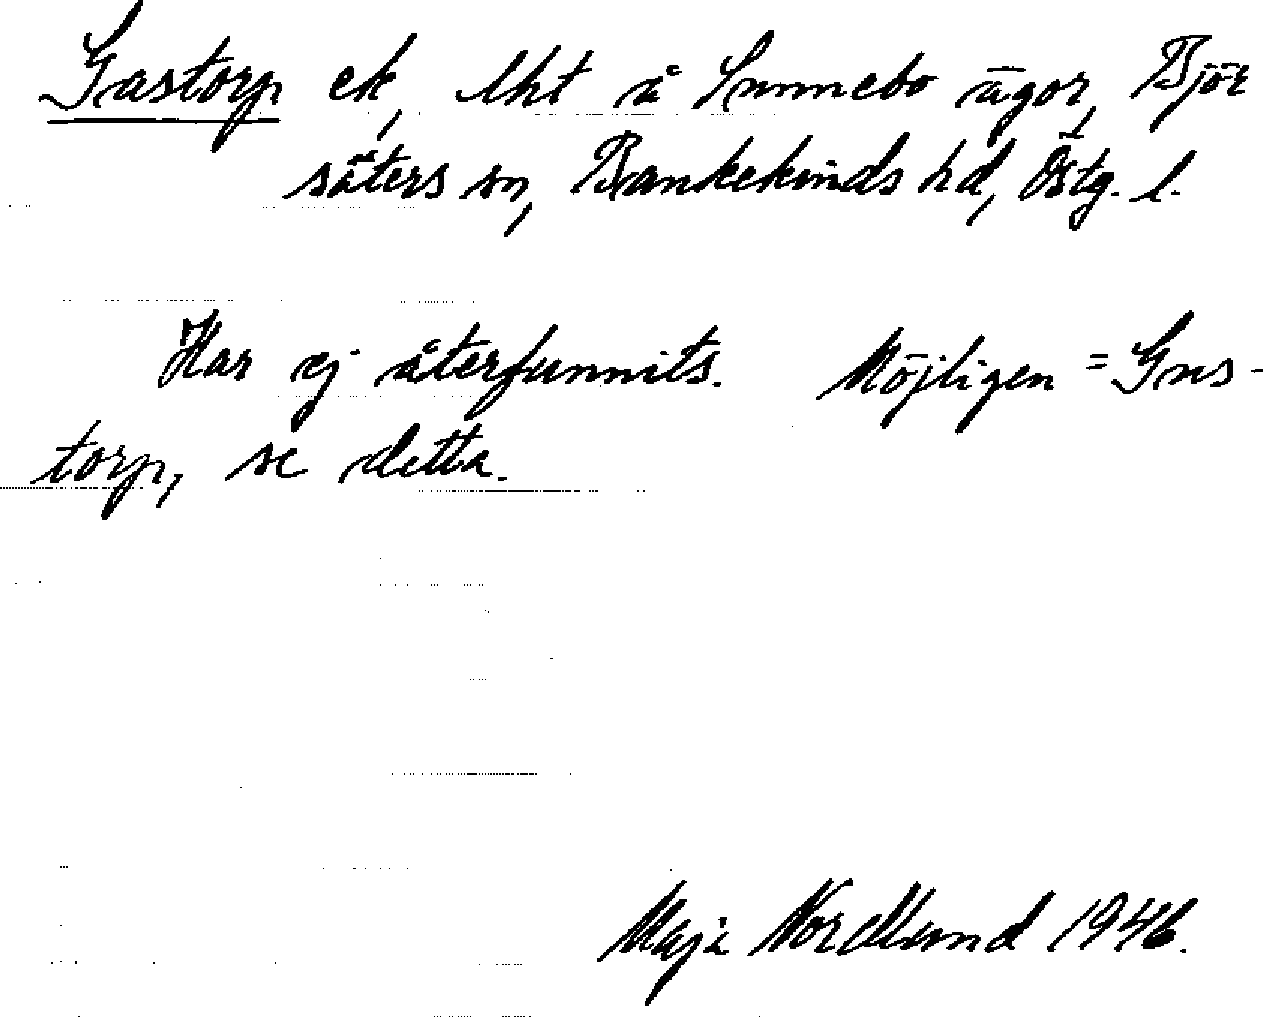 Gastorp ek, lht å Sunnebo ägor, Björ
säters sn, Bankekinds hd, Östg. l.
Har ej återfunnits. Möjligen = Gus-
torp, se detta.
Maja Nordlund 1946.